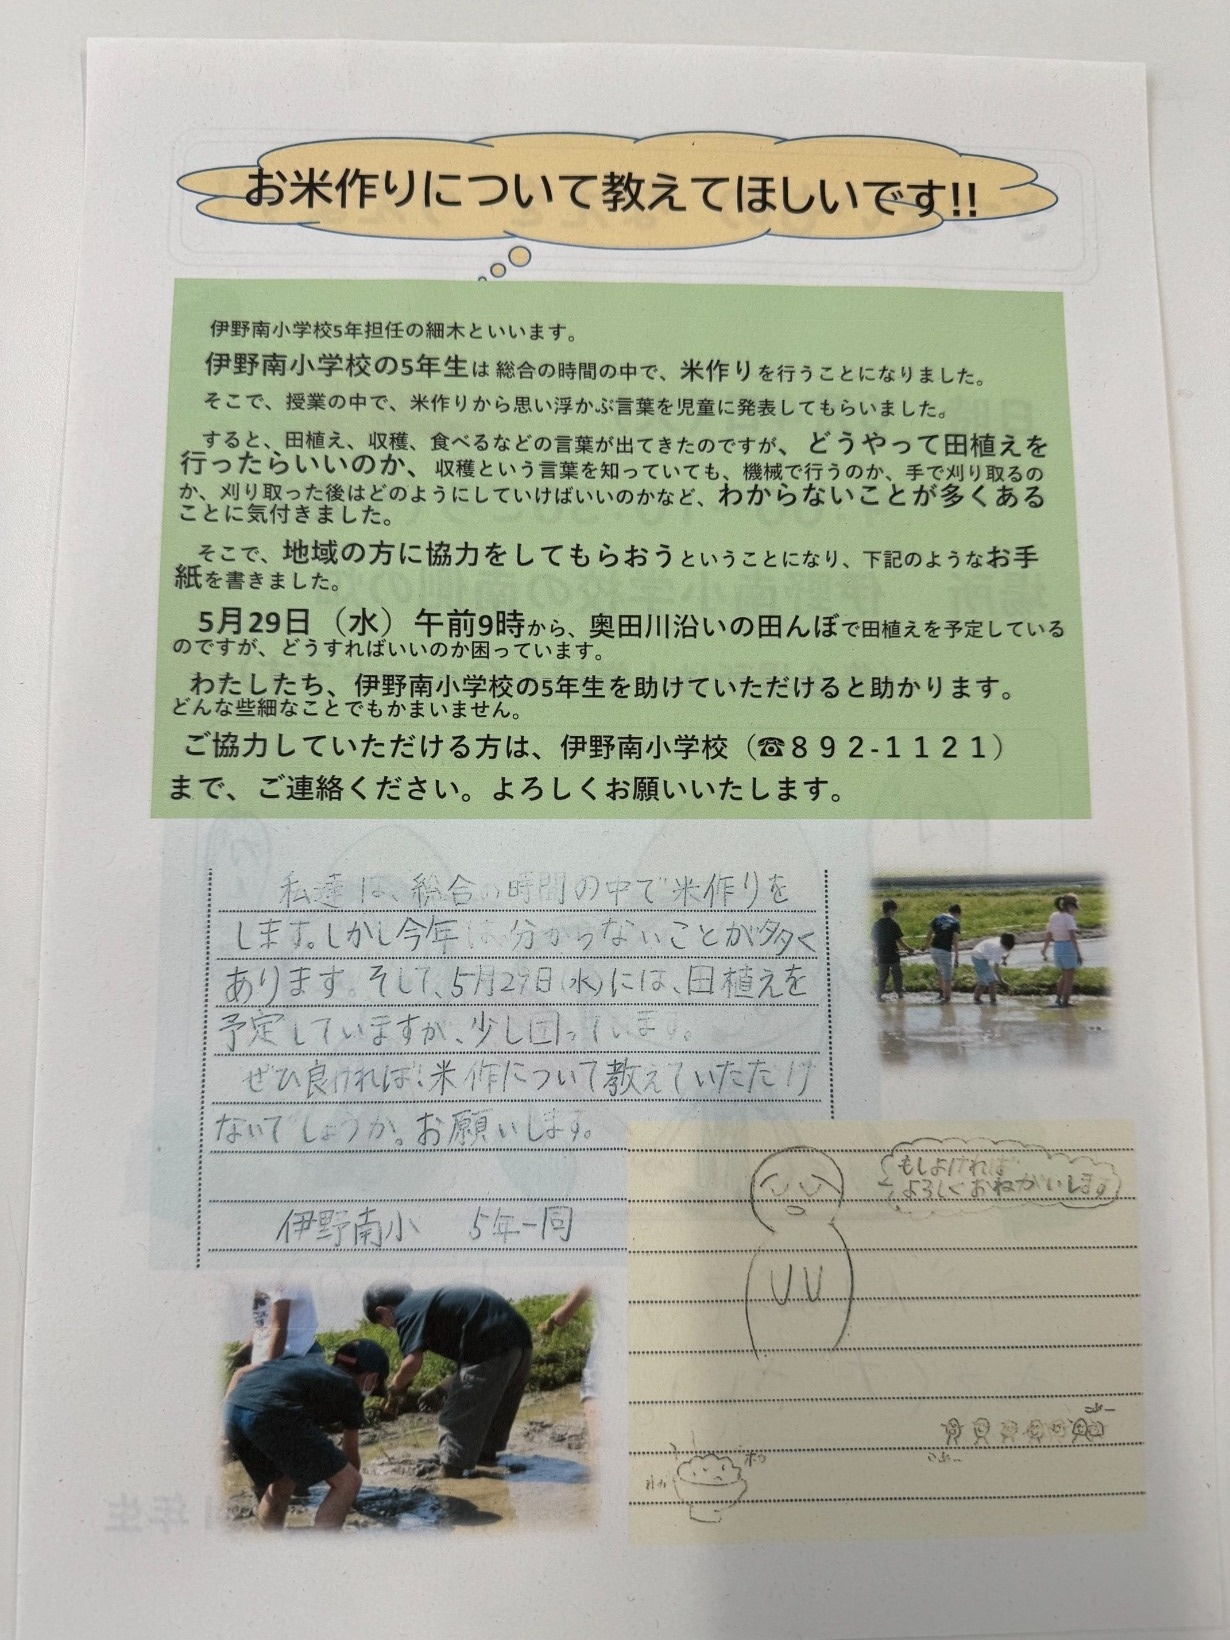 お米作りについて教えてほしいです!!
伊野南小学校5年担任の細木といいます。
伊野南小学校の5年生は総合の時間の中で、米作りを行うことになりました。
そこで、授業の中で、米作りから思い浮かぶ言葉を児童に発表してもらいました。
すると、田植え、収穫、食べるなどの言葉が出てきたのですが、どうやって田植えを
行ったらいいのか、収穫という言葉を知っていても、機械で行うのか、手で刈り取るの
か、刈り取った後はどのようにしていけばいいのかなど、わからないことが多くある
ことに気付きました。
そこで、地域の方に協力をしてもらおうということになり、下記のようなお手
紙を書きました。
5月29日（水）午前9時から、奥田川沿いの田んぼで田植えを予定している
のですが、どうすればいいのか困っています。
わたしたち、伊野南小学校の5年生を助けていただけると助かります。
どんな些細なことでもかまいません。
ご協力していただける方は、伊野南小学校（☎８９２-１１２１）
まで、ご連絡ください。よろしくお願いいたします。
私達は、総合の時間の中で米作りを
します。しかし今年は、分からないことが多く
あります。そして、5月29日(水)には、田植えを
予定していますが、少し困っています。
ぜひ良ければ、米作について教えていただけ
ないでしょうか。お願いします。
伊野南小 5年一同
もしよければ
よろしくおねがいします